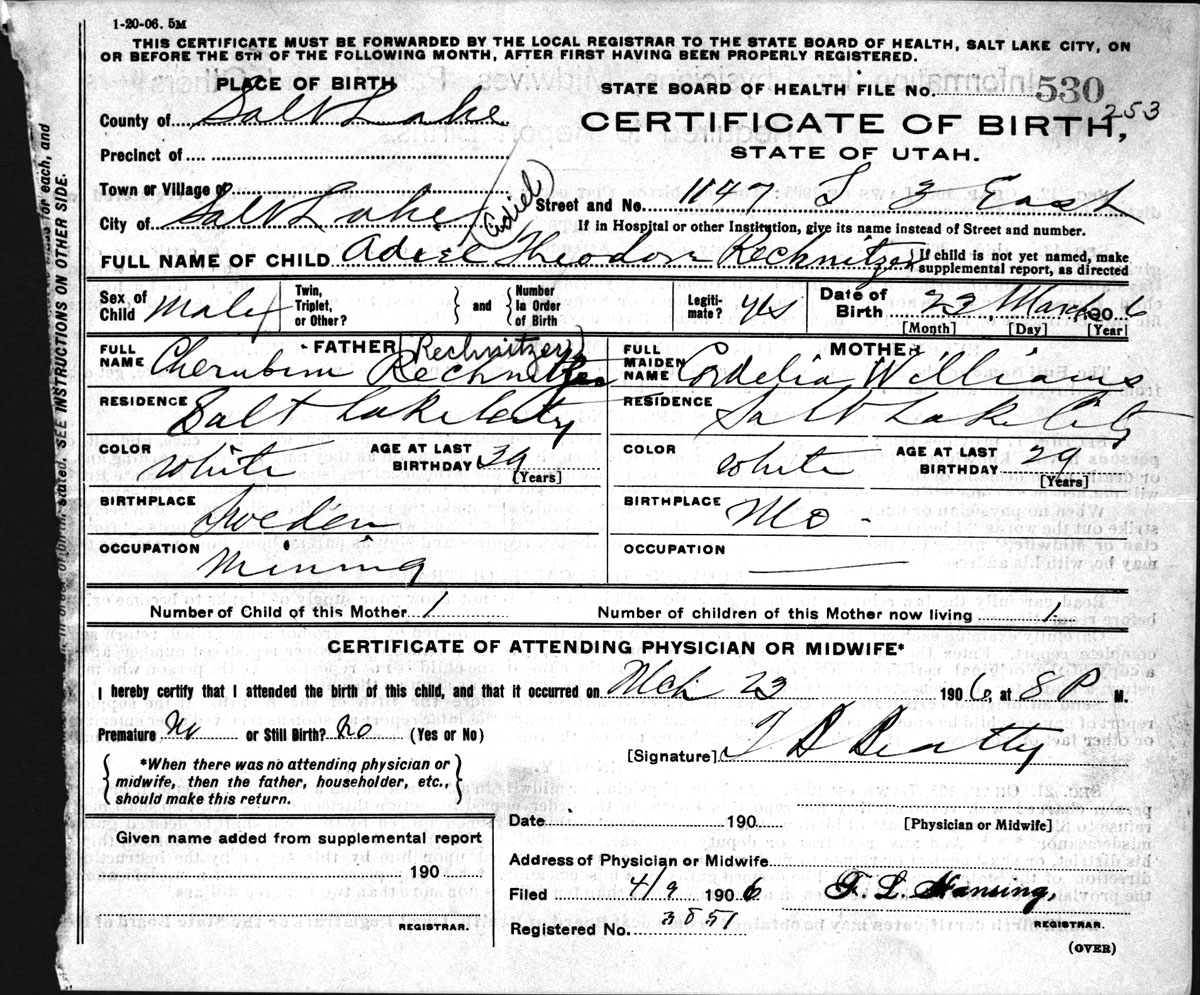 1-20-06. 5M
THIS CERTIFICATE MUST BE FORWARDED BY THE LOCAL REGISTRAR TO THE STATE BOARD OF HEALTH, SALT LAKE CITY, ON
OR BEFORE THE 5TH OF THE FOLLOWING MONTH, AFTER FIRST HAVING BEEN PROPERLY REGISTERED.
PLACE OF BIRTH
STATE BOARD OF HEALTH FILE No. 530
253
County of Salt Lake
CERTIFICATE OF BIRTH,
Precinct of
STATE OF UTAH.
Town or Village of
Street and No. 1147 S 3 East
City of Salt Lake
(Adiel)
If in Hospital or other Institution, give its name instead of Street and number.
FULL NAME OF CHILD Adiel Theodore Rechnitzer
{If child is not yet named, make
supplemental report, as directed
Sex of Child Male
Twin, Triplet, or Other?
and
Number in Order of Birth
Legitimate? yes
Date of Birth 23 March 1906
[Month] [Day] [Year]
FATHER
(Rechnitzer)
FULL NAME Cherubim Rechnitzer
MOTHER
FULL MAIDEN NAME Cordelia Williams
RESIDENCE Salt Lake City
RESIDENCE Salt Lake City
COLOR White
AGE AT LAST BIRTHDAY 39 [Years]
COLOR White
AGE AT LAST BIRTHDAY 29 [Years]
BIRTHPLACE Sweden
BIRTHPLACE Mo -
OCCUPATION Mining
OCCUPATION
Number of Child of this Mother 1
Number of children of this Mother now living 1
CERTIFICATE OF ATTENDING PHYSICIAN OR MIDWIFE*
I hereby certify that I attended the birth of this child, and that it occurred on Mch 23 1906, at 8 P M.
Premature No or Still Birth? No (Yes or No)
[Signature] T B Beatty
*When there was no attending physician or
midwife, then the father, householder, etc.,
should make this return.
Date 190
[Physician or Midwife]
Given name added from supplemental report
190
Address of Physician or Midwife
Filed 4/9 1906
F. L. Hansing,
REGISTRAR.
Registered No. 3851
REGISTRAR.
(OVER)
stated. SEE INSTRUCTIONS ON OTHER SIDE.
for each, and